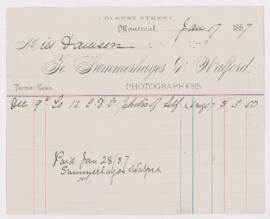 1 BLEURY STREET,
Montreal, Jan 17 1887
Miss Dawson
To Summerhayes & Walford,
PHOTOGRAPHERS.
Terms: Cash.
Dec 9th To 12 C.D.V. photos of Self $3.50
Paid Jan 28/87
Summerhayes & Walford